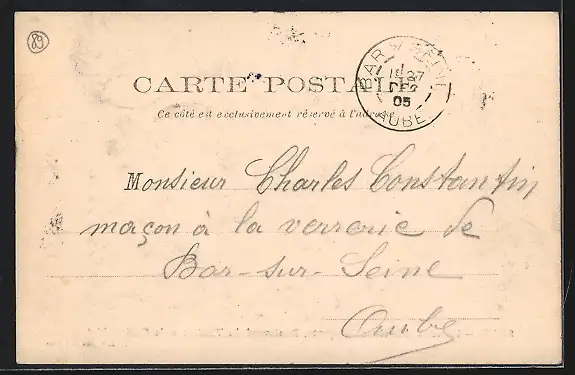 89
BAR-S-SEINE
27
05
AUBE
CARTE POSTALE
Ce côté est exclusivement réservé à l'adresse
Monsieur Charles Constantin
maçon à la verrerie de
Bar-sur-Seine
Aube